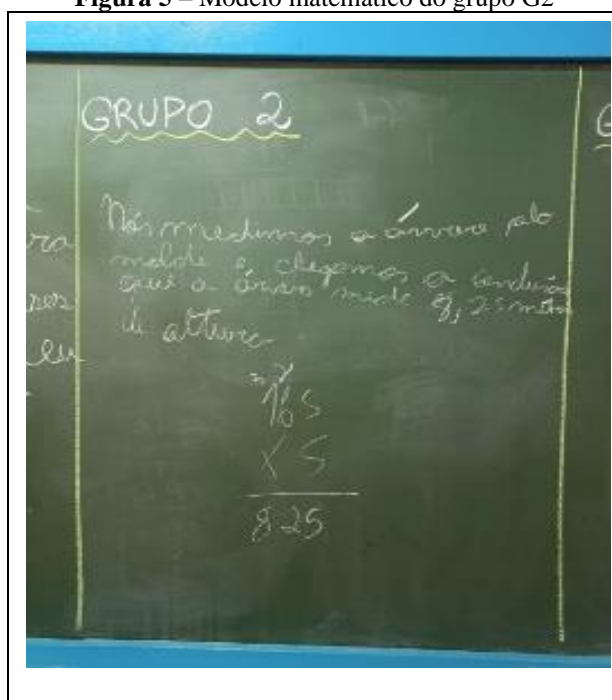 Figura 5 – Modelo matemático do grupo G2
GRUPO 2
Nós medimos a árvore pelo
molde e chegamos a conclusão
que a árvore mede 8,25 metros
de altura
165
X 5
825